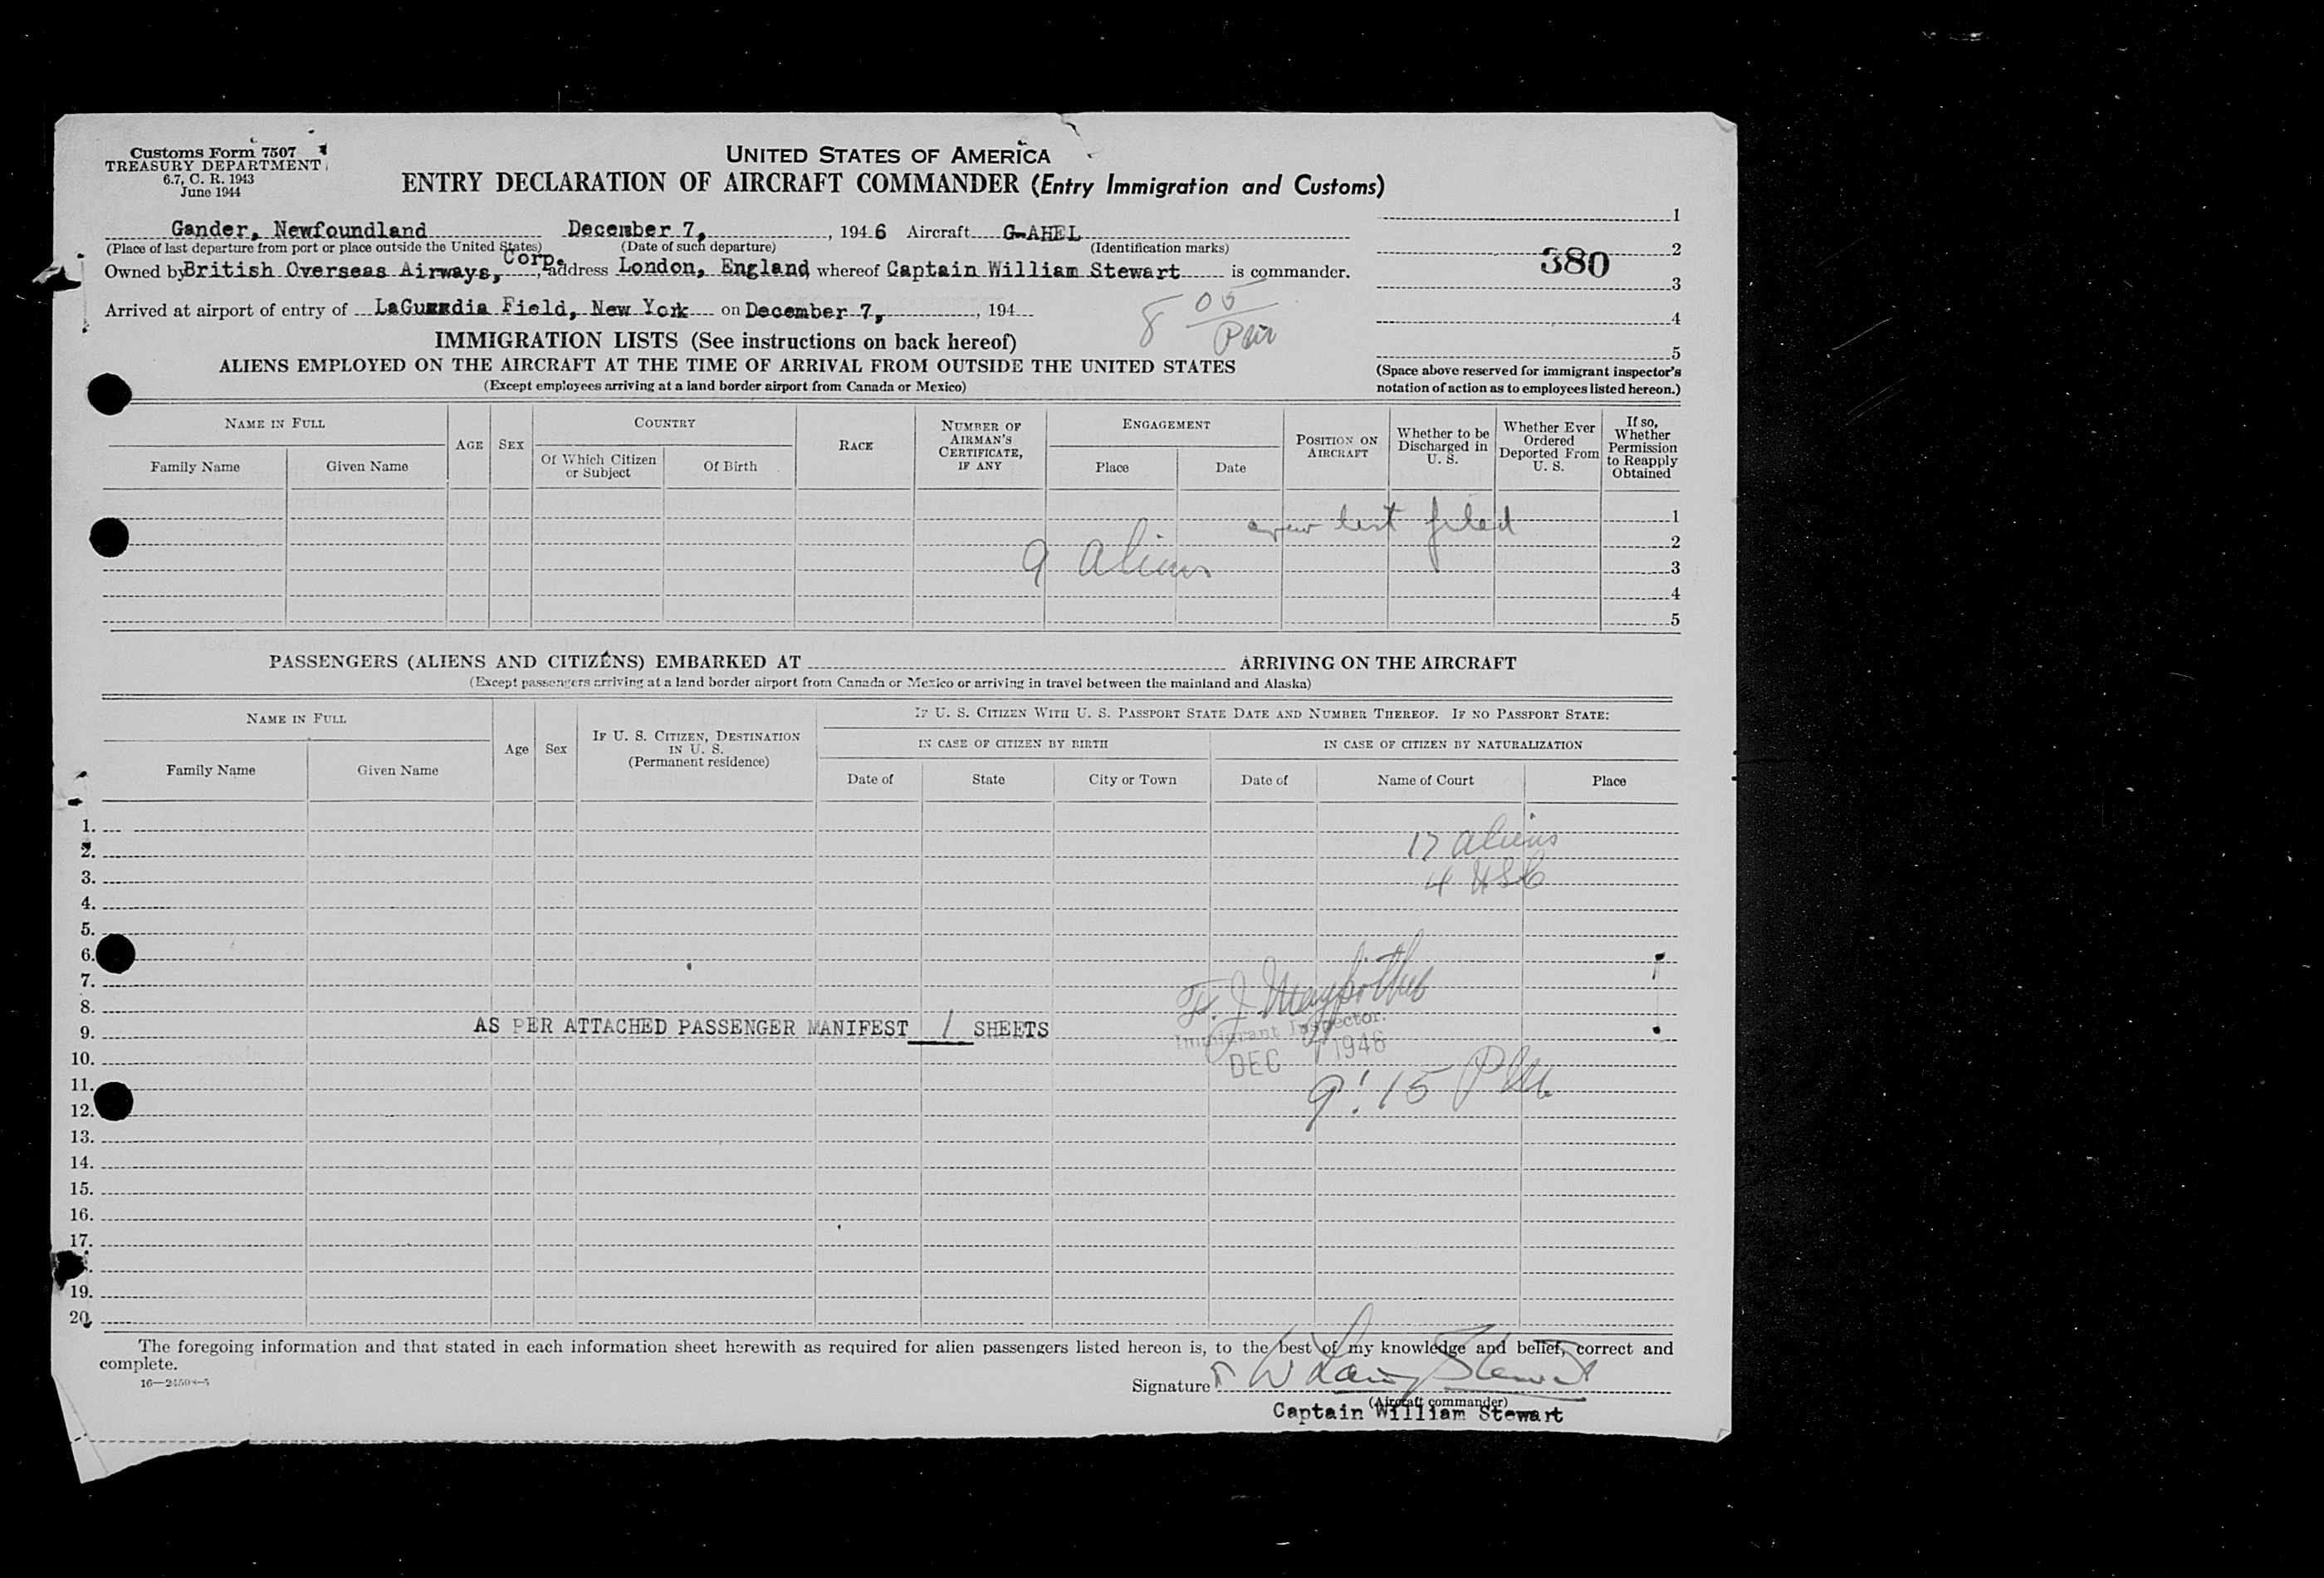 Customs Form 7507
TREASURY DEPARTMENT
6.7, C. R. 1943
June 1944
UNITED STATES OF AMERICA
ENTRY DECLARATION OF AIRCRAFT COMMANDER (Entry Immigration and Customs)
Gander, Newfoundland December 7, 1946 Aircraft G-AHEL
(Place of last departure from port or place outside the United States) (Date of such departure) (Identification marks)
Owned by British Overseas Airways, Corp., address London, England, whereof Captain William Stewart is commander.
Arrived at airport of entry of LaGuardia Field, New York on December 7, 194
8 05 PM
1
2
380
3
4
5
(Space above reserved for immigrant inspector's
notation of action as to employees listed hereon.)
IMMIGRATION LISTS (See instructions on back hereof)
ALIENS EMPLOYED ON THE AIRCRAFT AT THE TIME OF ARRIVAL FROM OUTSIDE THE UNITED STATES
(Except employees arriving at a land border airport from Canada or Mexico)
NAME IN FULL
Family Name Given Name
AGE SEX
COUNTRY
Of Which Citizen or Subject Of Birth
RACE
NUMBER OF AIRMAN'S CERTIFICATE, IF ANY
ENGAGEMENT
Place Date
POSITION ON AIRCRAFT
Whether to be Discharged in U. S.
Whether Ever Ordered Deported From U. S.
If so, Whether Permission to Reapply Obtained
crew list filed 1
2
9 aliens 3
4
5
PASSENGERS (ALIENS AND CITIZENS) EMBARKED AT ARRIVING ON THE AIRCRAFT
(Except passengers arriving at a land border airport from Canada or Mexico or arriving in travel between the mainland and Alaska)
NAME IN FULL
Family Name Given Name
Age Sex
IF U. S. CITIZEN, DESTINATION IN U. S.
(Permanent residence)
IF U. S. CITIZEN WITH U. S. PASSPORT STATE DATE AND NUMBER THEREOF. IF NO PASSPORT STATE:
IN CASE OF CITIZEN BY BIRTH IN CASE OF CITIZEN BY NATURALIZATION
Date of State City or Town Date of Name of Court Place
1.
2. 17 aliens
3. 4 USC
4.
5.
6.
7.
8. F. J.
9. AS PER ATTACHED PASSENGER MANIFEST 1 SHEETS
Immigrant Inspector.
DEC 7 1946
10.
11. 9:15 PM
12.
13.
14.
15.
16.
17.
19.
20.
The foregoing information and that stated in each information sheet herewith as required for alien passengers listed hereon is, to the best of my knowledge and belief, correct and
complete.
16—24598-5
Signature W Stewart
(Aircraft commander)
Captain William Stewart